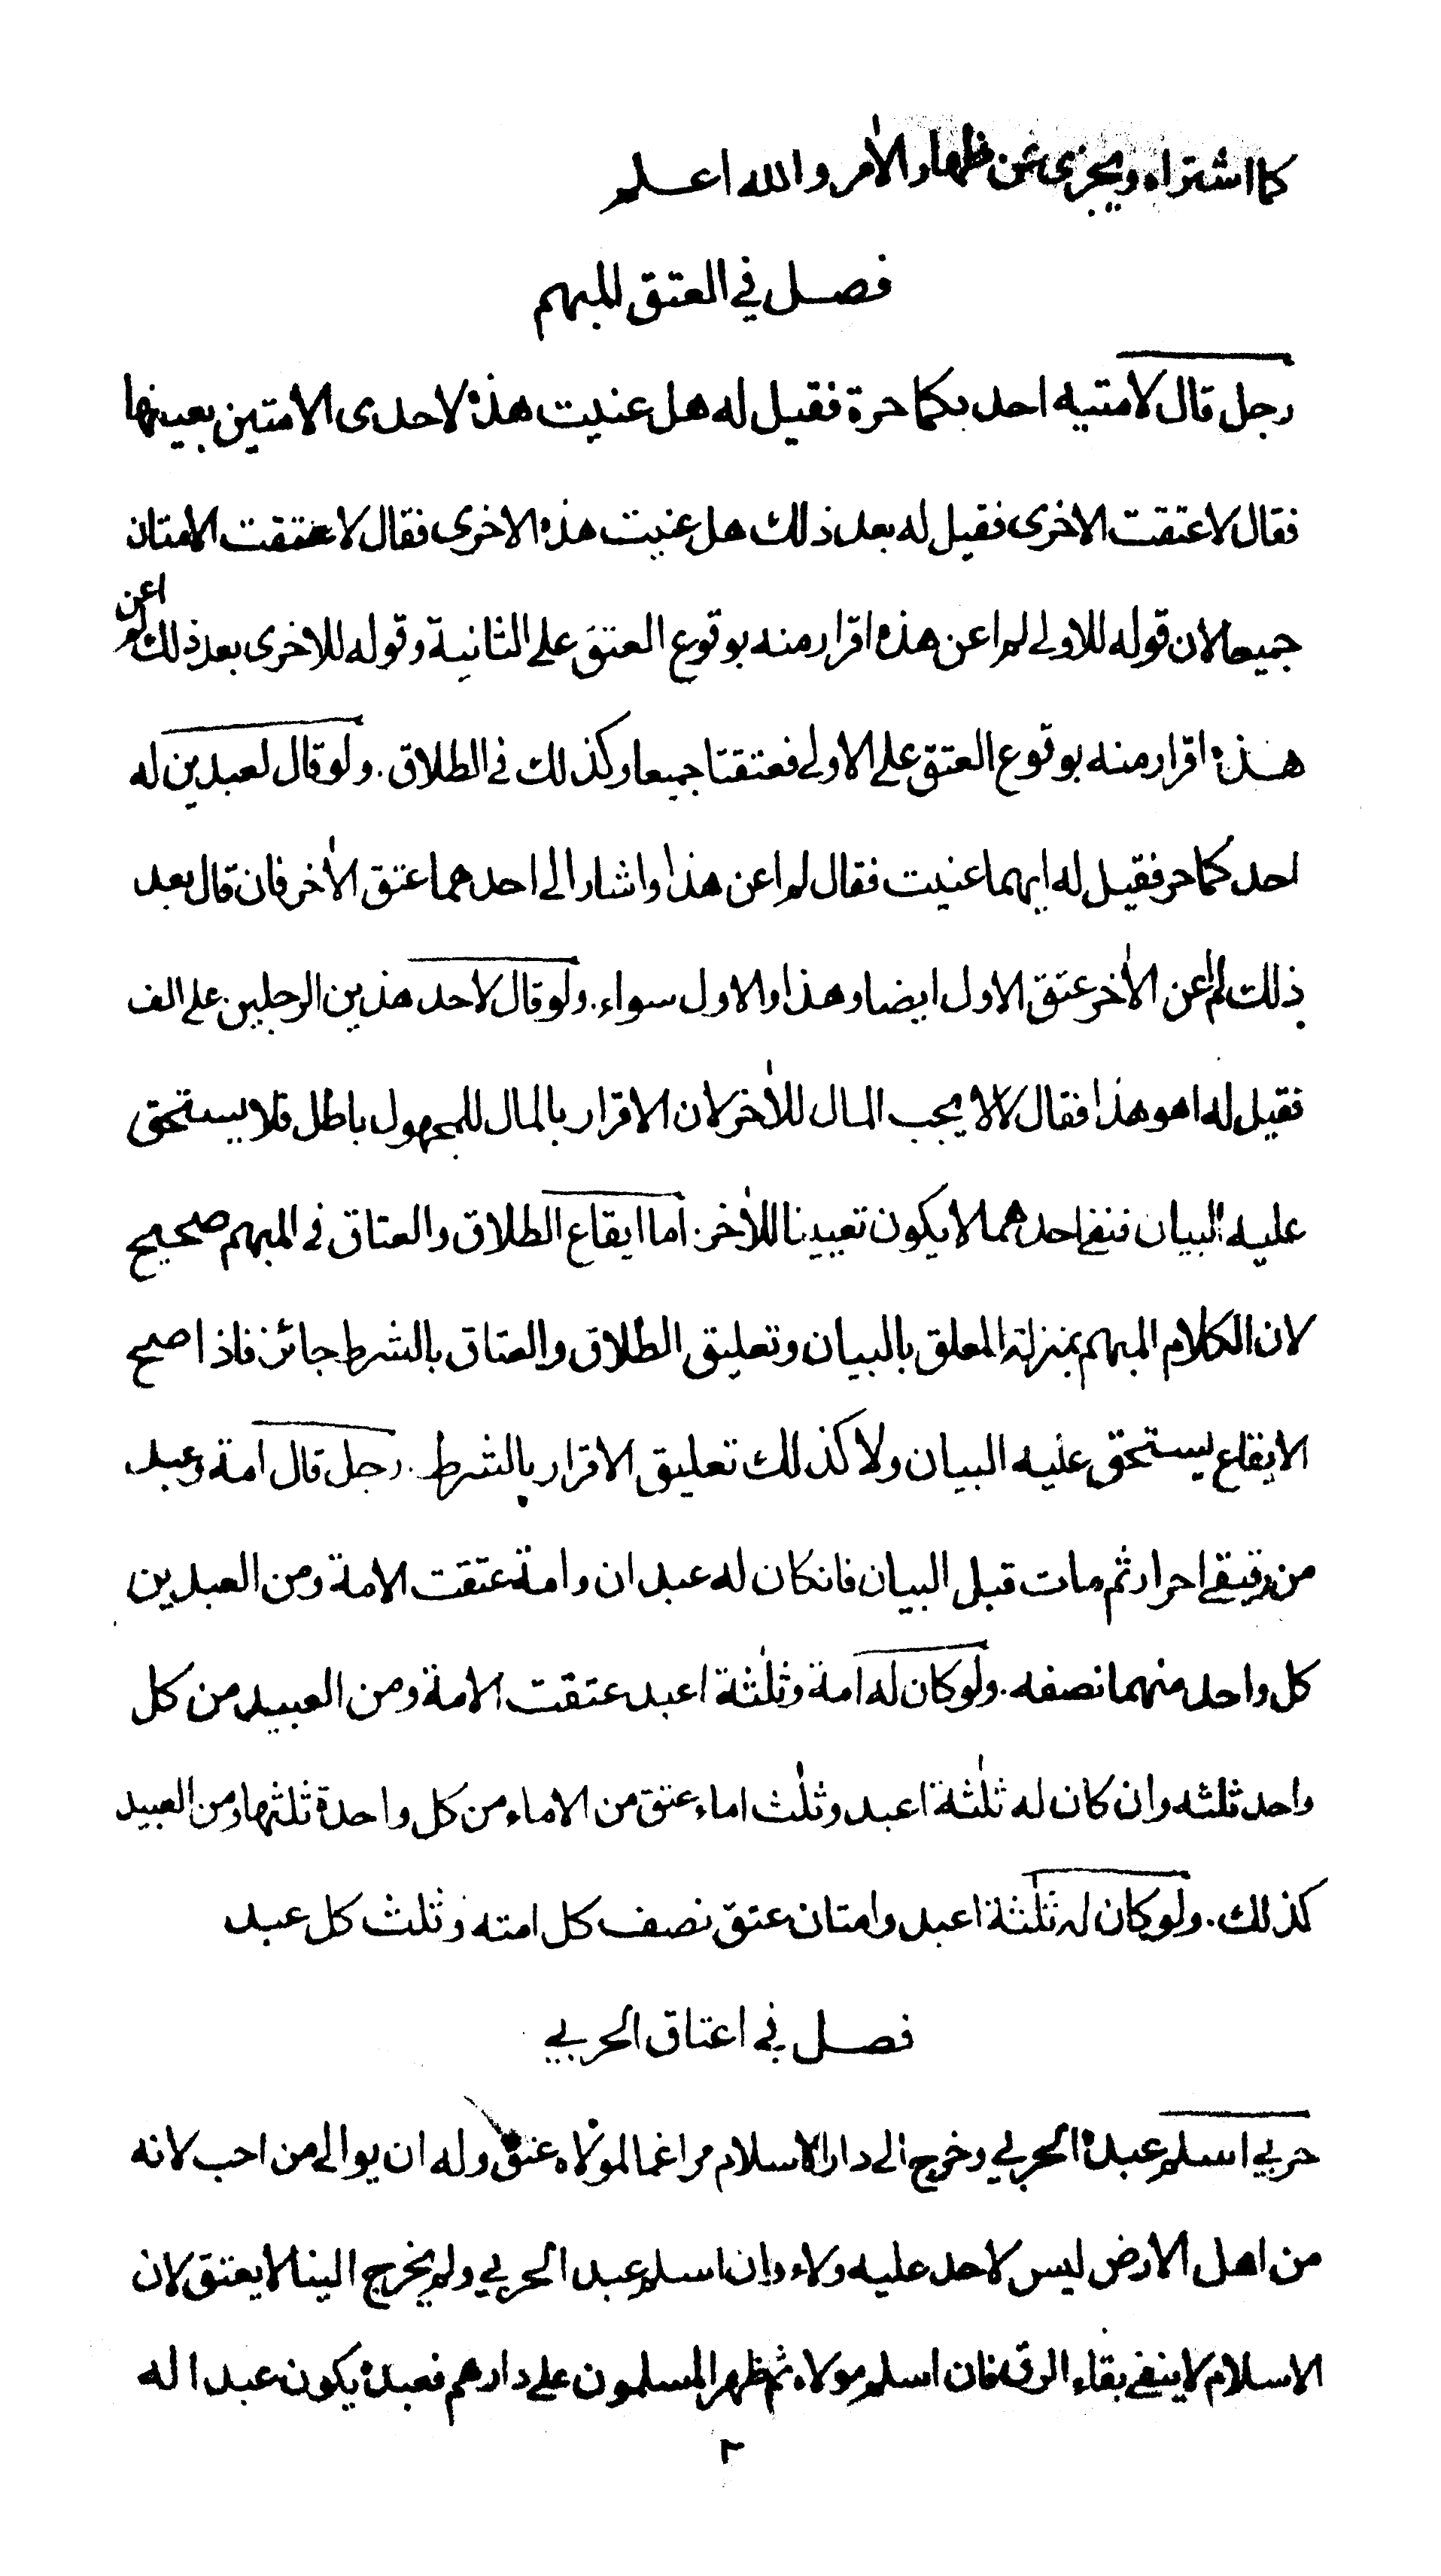 كما اشتراه ويجزى عن ظهار الاٰمر والله اعلم
فصل في العتق المبهم
رجل قال لامتيه احد يكما حرة فقيل له هل عنيت هذه لاحدى الامتين بعينها
فقال لا عتقت الاخرى فقيل له بعد ذلك هل عنيت هذه الاخرى فقال لا عتقت الامتان
جميعا لان قوله للاولى لم اعن هذه اقرار منه بوقوع العتق على الثانية وقوله للاخرى بعد ذلك لم اعن
هذه اقرار منه بوقوع العتق على الاولى فعتقتا جميعا وكذلك في الطلاق. ولو قال لعبدين له
احد كما حر فقيل له ايهما عنيت فقال لم اعن هذا واشار الى احدهما عتق الاٰخر فان قال بعد
ذلك لم اعن الاٰخر عتق الاول ايضا وهذا والاول سواء. ولو قال لاحد هذين الرجلين على الف
فقيل له اهو هذا فقال لا لا يجب المال للاٰخر لان الاقرار بالمال للمجهول باطل فلا يستحق
عليه البيان فنفي احدهما لا يكون تعيينا للاٰخر. اما ايقاع الطلاق والعتاق في المبهم صحيح
لان الكلام المبهم بمنزلة المعلق بالبيان وتعليق الطلاق والعتاق بالشرط جائز فاذا صح
الايقاع يستحق عليه البيان ولا كذلك تعليق الاقرار بالشرط. رجل قال امة وعبد
من رقيقي احرار ثم مات قبل البيان فانكان له عبدان وامة عتقت الامة ومن العبدين
كل واحد منهما نصفه. ولو كان له امة وثلٰثة اعبد عتقت الامة ومن العبيد من كل
واحد ثلثه وان كان له ثلٰثة اعبد وثلٰث اماء عتق من الاماء من كل واحدة ثلثها ومن العبيد
كذلك. ولو كان له ثلٰثة اعبد وامتان عتق نصف كل امته وثلث كل عبد
فصل في اعتاق الحربي
حربي اسلم عبده الحربي وخرج الى دار الاسلام مراغما لمولاه عتق وله ان يوالى من احب لانه
من اهل الارض ليس لاحد عليه ولاء وان اسلم عبد الحربي ولم يخرج الينا لا يعتق لان
الاسلام لا ينفي بقاء الرق فان اسلم مولاه ثم ظهر المسلمون على دارهم فعبده يكون عبدا له